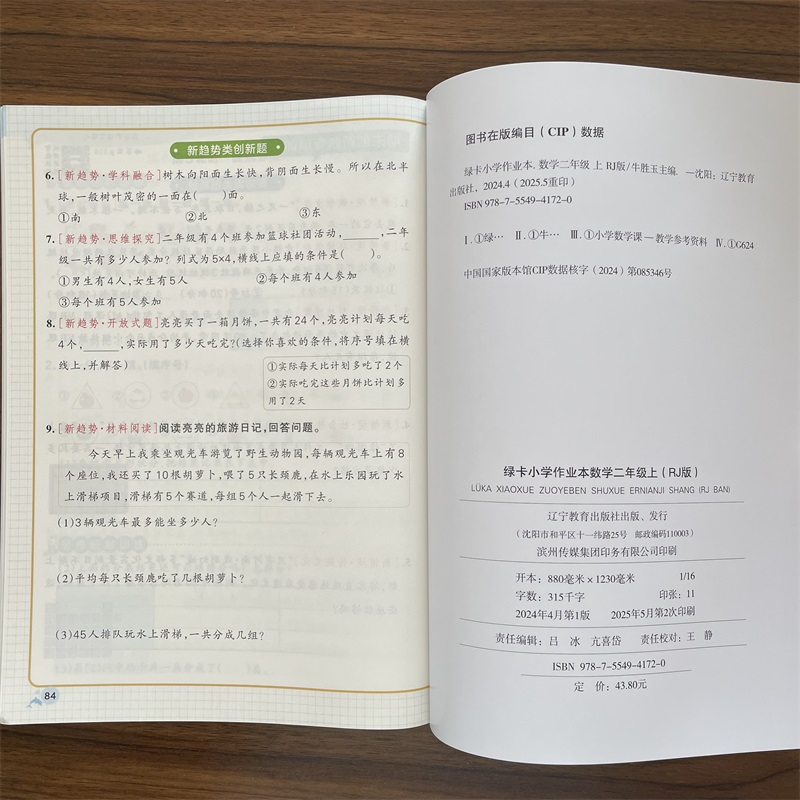 新趋势类创新题
6.[新趋势·学科融合]树木向阳面生长快,背阴面生长慢。所以在北半
球,一般树叶茂密的一面在( )面。
①南 ②北 ③东
7.[新趋势·思维探究]二年级有4个班参加篮球社团活动,______,二年
级一共有多少人参加?列式为5×4,横线上应填的条件是( )。
①男生有4人,女生有5人 ②每个班有4人参加
③每个班有5人参加
8.[新趋势·开放式题]亮亮买了一箱月饼,一共有24个,亮亮计划每天吃
4个,______,实际用了多少天吃完?(选择你喜欢的条件,将序号填在横
线上,并解答)
①实际每天比计划多吃了2个
②实际吃完这些月饼比计划多
用了2天
9.[新趋势·材料阅读]阅读亮亮的旅游日记,回答问题。
今天早上我乘坐观光车游览了野生动物园,每辆观光车上有8
个座位,我还买了10根胡萝卜,喂了5只长颈鹿,在水上乐园玩了水
上滑梯项目,滑梯有5个赛道,每组5个人一起滑下去。
(1)3辆观光车最多能坐多少人?
(2)平均每只长颈鹿吃了几根胡萝卜?
(3)45人排队玩水上滑梯,一共分成几组?
84
图书在版编目(CIP)数据
绿卡小学作业本.数学二年级 上 RJ版/牛胜玉主编. —沈阳:辽宁教育
出版社,2024.4(2025.5重印)
ISBN 978-7-5549-4172-0
Ⅰ.①绿… Ⅱ.①牛… Ⅲ.①小学数学课—教学参考资料 Ⅳ.①G624
中国国家版本馆CIP数据核字(2024)第085346号
绿卡小学作业本数学二年级上(RJ版)
LÜKA XIAOXUE ZUOYEBEN SHUXUE ERNIANJI SHANG (RJ BAN)
辽宁教育出版社出版、发行
(沈阳市和平区十一纬路25号 邮政编码110003)
滨州传媒集团印务有限公司印刷
开本:880毫米×1230毫米 1/16
字数:315千字 印张:11
2024年4月第1版 2025年5月第2次印刷
责任编辑:吕 冰 亢喜岱 责任校对:王 静
ISBN 978-7-5549-4172-0
定 价:43.80元